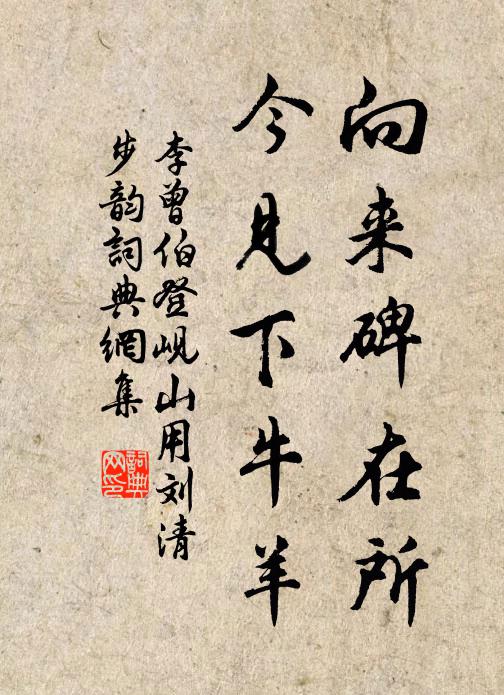 向来碑在所
今見下牛羊
李曾伯登峴山用刘清
步韵詞典網集
詞典网印